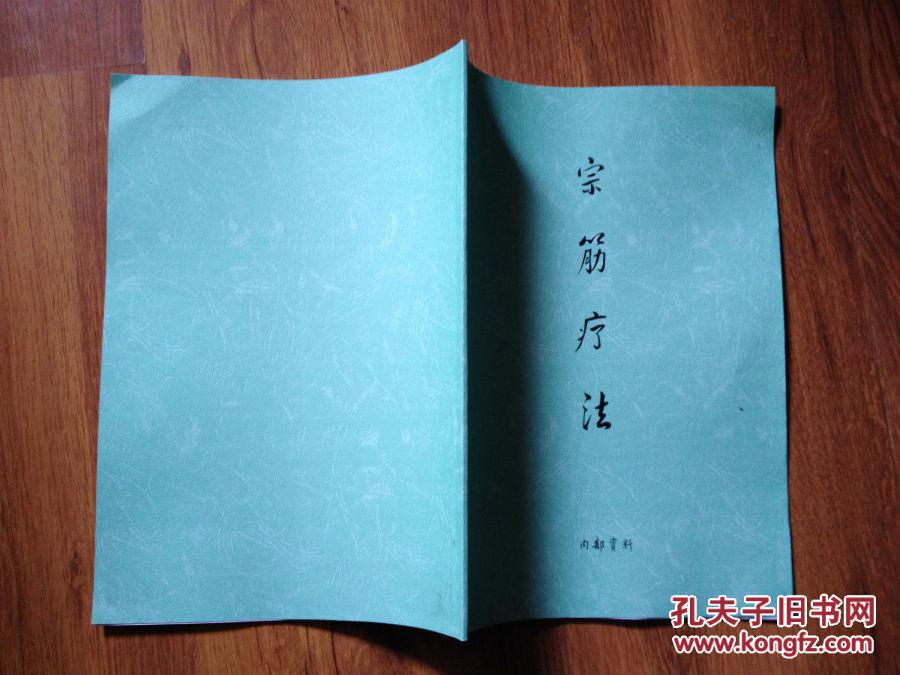 宗筋疗法
内部資料
孔夫子旧书网
www.kongfz.com